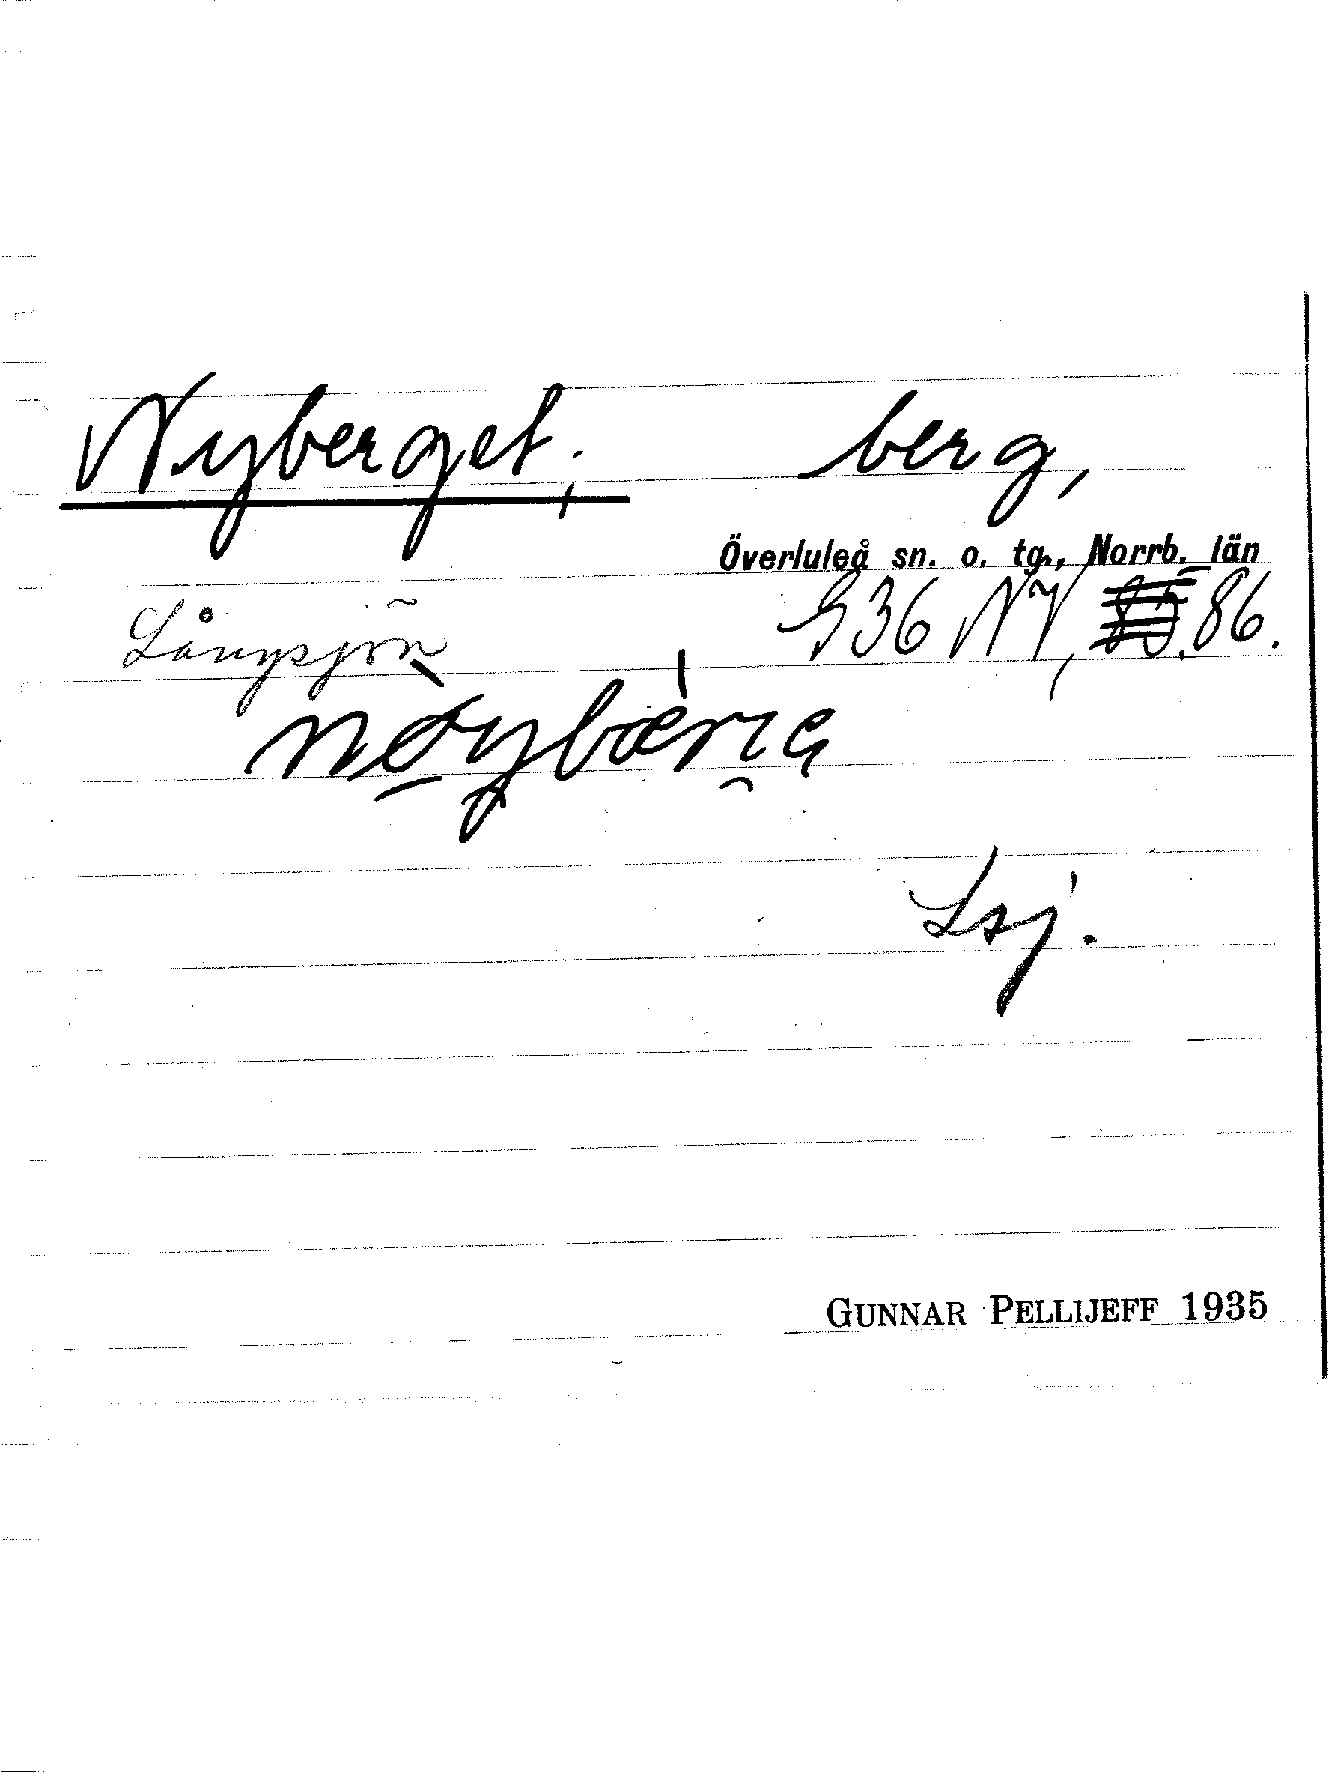 Nyberget; berg,
Överluleå sn. o. tg., Norrb. län
Långsjön G36 NV, 86.
nøybærıɕ
Lsj.
GUNNAR PELLIJEFF 1935